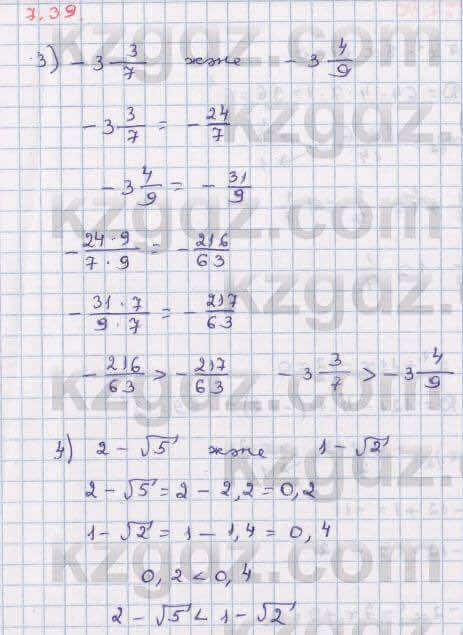 7.39
3) -3 3/7 және -3 4/9
-3 3/7 = -24/7
-3 4/9 = -31/9
-24·9/7·9 = -216/63
-31·7/9·7 = -217/63
-216/63 > -217/63 -3 3/7 > -3 4/9
4) 2 - √5 және 1 - √2
2 - √5 = 2 - 2,2 = 0,2
1 - √2 = 1 - 1,4 = 0,4
0,2 < 0,4
2 - √5 < 1 - √2
kzgdz.com
kzgdz.com
kzgdz.com
kzgdz.com
kzgdz.com
kzgdz.com
kzgdz.com